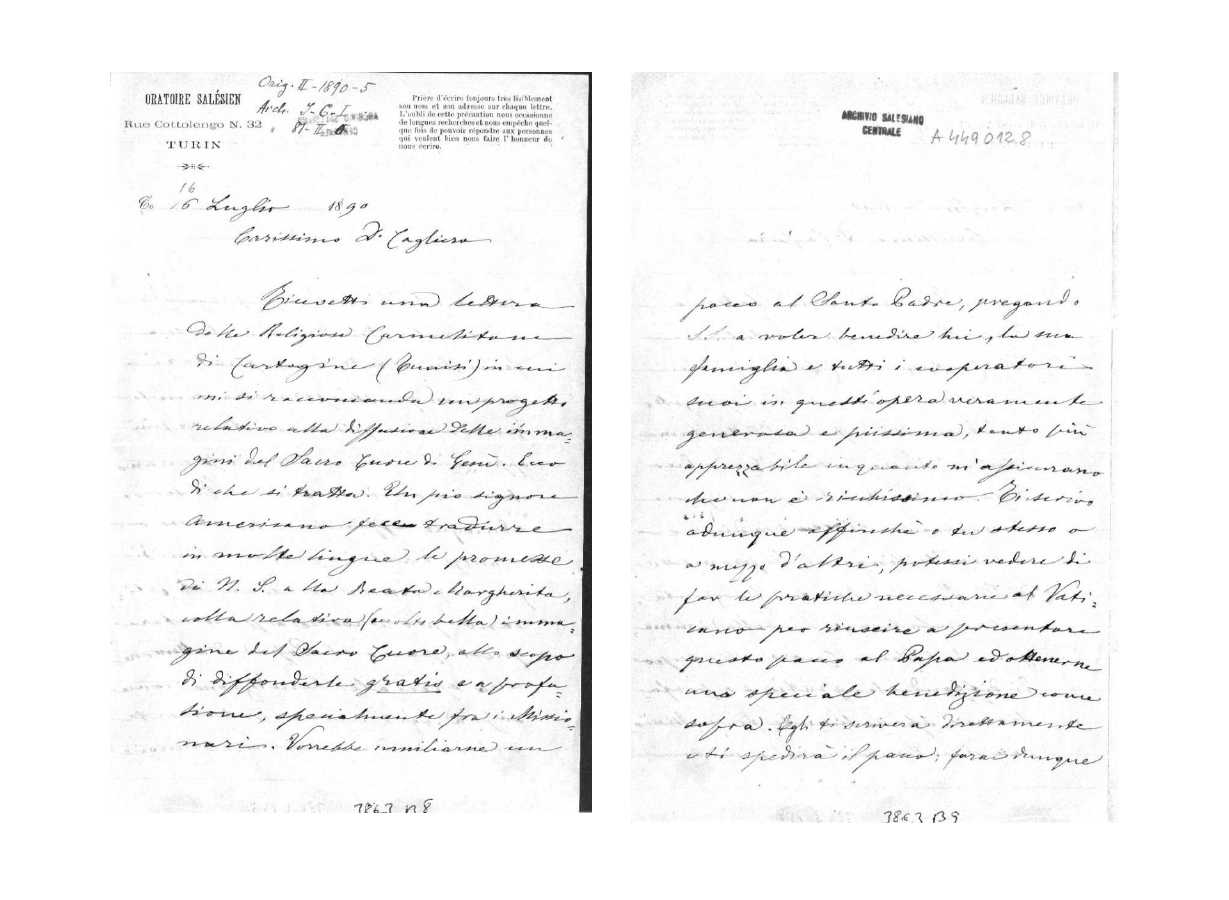 Orig. II-1890-5
ORATOIRE SALÉSIEN
Arch. I-C-I
Rue Cottolengo N. 32
" 81-II
TURIN
Prière d'écrire toujours très lisiblement
son nom et son adresse sur chaque lettre.
L'oubli de cette précaution nous occasionne
de longues recherches et nous empêche quel-
que fois de pouvoir répondre aux personnes
qui veulent bien nous faire l'honneur de
nous écrire.
16
To 16 Luglio 1890
Carissimo D. Cagliero
Ricevetti una lettera
delle Religiose Carmelitane
di Cartagine (Tunisi) in cui
mi si raccomanda un progetto
relativo alla diffusione delle imma=
gini del Sacro Cuore di Gesù. Ecco
di che si tratta. Un pio signore
Americano fece tradurre
in molte lingue le promesse
di N. S. alla Beata Margherita,
colla relativa bella) imma=
gine del Sacro Cuore, allo scopo
di diffonderle gratis e a profu=
sione, specialmente fra i Missio
nari. Vorrebbe umiliarne un
3863 B8
ARCHIVIO SALESIANO
CENTRALE
A4490128
pacco al Santo Padre, pregando
S.S. a voler benedire lui, la sua
famiglia e tutti i cooperatori
suoi in quest'opera veramente
generosa e piissima, tanto più
apprezzabile inquanto m'assicurano
che non è ricchissimo. Ti scrivo
adunque affinchè o tu stesso o
a mezzo d'altri, potessi vedere di
far le pratiche necessarie al Vati=
cano per riuscire a presentare
questo pacco al Papa ed ottenerne
una speciale benedizione come
sopra. Egli ti scriverà direttamente
e ti spedirà il pacco; farai dunque
3863 B9